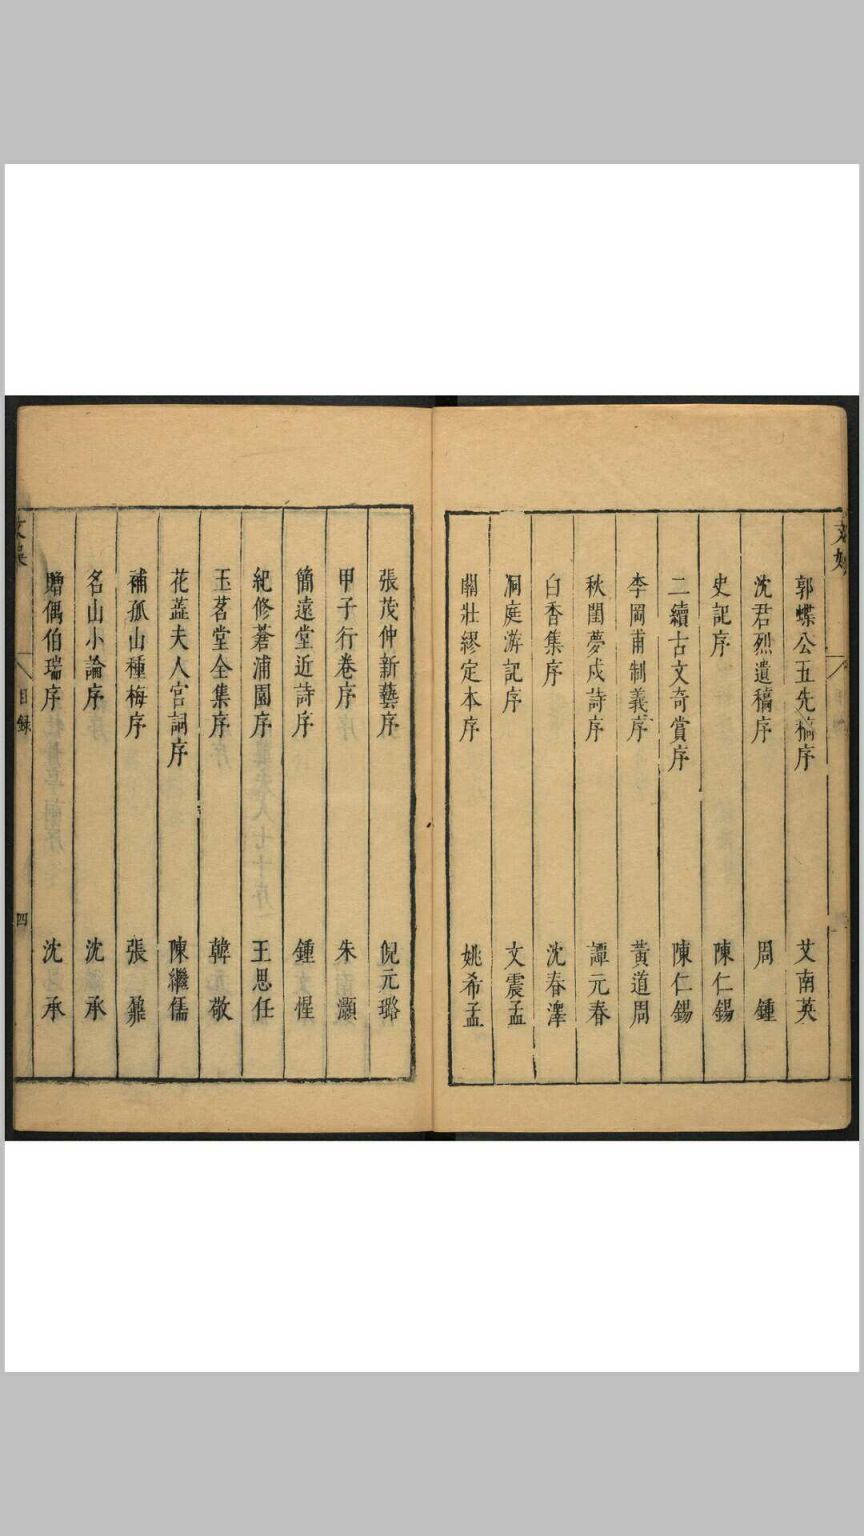 郭蝶公五先稿序 艾南英
沈君烈遺稿序 周鍾
史記序 陳仁錫
二續古文奇賞序 陳仁錫
李岡甫制義序 黃道周
秋閨夢戍詩序 譚元春
白香集序 沈春澤
洞庭游記序 文震孟
關壯繆定本序 姚希孟
張茂仲新藝序 倪元璐
甲子行卷序 朱灝
簡遠堂近詩序 鍾惺
紀修蒼浦園序 王思任
玉茗堂全集序 韓敬
花蕋夫人宮詞序 陳繼儒
補孤山種梅序 張鼐
名山小論序 沈承
贈偶伯瑞序 沈承
目錄
四